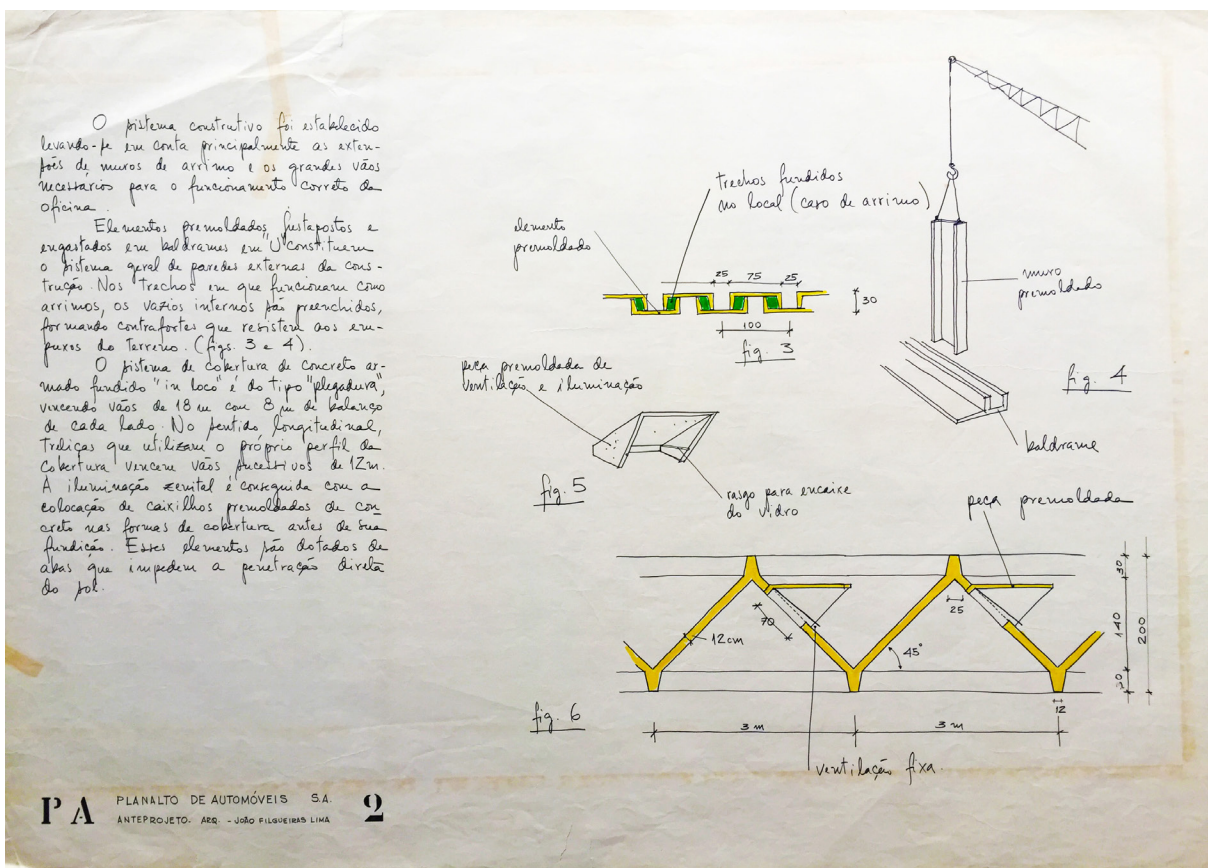 O sistema construtivo foi estabelecido
levando-se em conta principalmente as exten-
sões de muros de arrimo e os grandes vãos
necessários para o funcionamento correto da
oficina.
Elementos premoldados, justapostos e
engastados em baldrames em "U" constituem
o sistema geral de paredes externas da cons-
trução. Nos trechos em que funcionam como
arrimos, os vazios internos são preenchidos,
formando contrafortes que resistem aos em-
puxos do terreno. (figs. 3 e 4).
O sistema de cobertura de concreto ar-
mado fundido "in loco" é do tipo "plegadura",
vencendo vãos de 18 m com 8 m de balanço
de cada lado. No sentido longitudinal,
treliças que utilizam o próprio perfil da
cobertura vencem vãos sucessivos de 12m.
A iluminação zenital é conseguida com a
colocação de caixilhos premoldados de con
creto nas formas de cobertura antes de sua
fundição. Esses elementos são dotados de
abas que impedem a penetração direta
do sol.
trechos fundidos
no local (caso de arrimo)
elemento
premoldado
25
75
25
30
100
fig. 3
muro
premoldado
fig. 4
baldrame
peça premoldada de
ventilação e iluminação
fig. 5
rasgo para encaixe
do vidro
peça premoldada
70
12cm
25
45°
30
140
200
30
12
fig. 6
3 m
3 m
ventilação fixa.
PA
PLANALTO DE AUTOMÓVEIS S.A.
ANTEPROJETO. ARQ. - JOÃO FILGUEIRAS LIMA
2